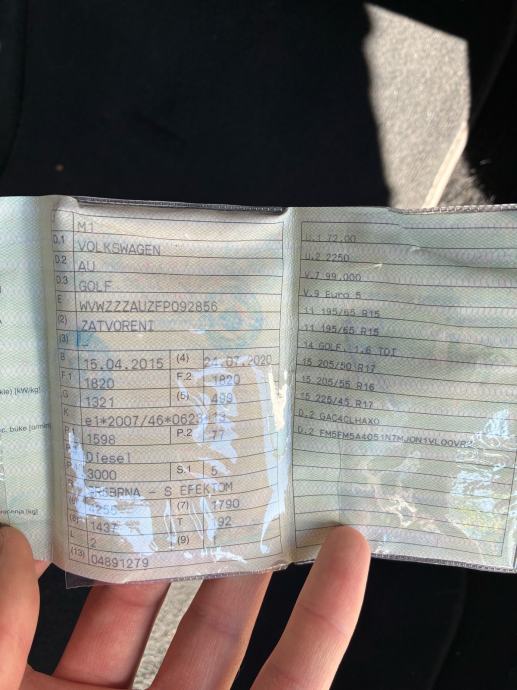 M1
D.1 VOLKSWAGEN
D.2 AU
D.3 GOLF
E WVWZZZAUZFP092856
(2) ZATVORENI
(3) -
B 15.04.2015 (4) 24.07.2020
F.1 1820 F.2 1820
G 1321 (5) 499
K e1*2007/46*0623*13
1598 P.2 77
Diesel
3000 S.1 5
SREBRNA - S EFEKTOM
4255 (7) 1790
(8) 1437 T 192
L 2 (9) 1
(13) 04891279
kle) [kW/kg]
c. buke [o/min]
U.1 72,00
U.2 2250
V.7 99,000
V.9 Euro 5
11 195/65 R15
11 195/65 R15
14 GOLF, 1,6 TDI
15 205/50 R17
15 205/55 R16
15 225/45 R17
D.2 GAC4CLHAX0